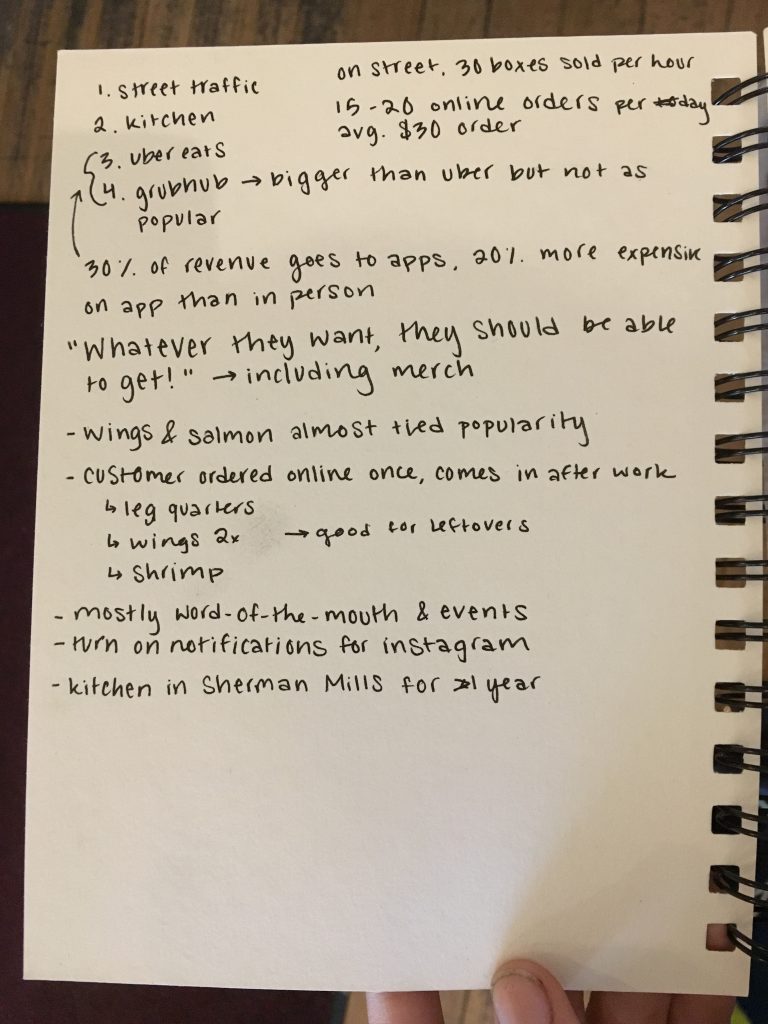 1. street traffic
on street, 30 boxes sold per hour
2. kitchen
15-20 online orders per day
avg. $30 order
3. uber eats
4. grubhub → bigger than uber but not as
popular
30% of revenue goes to apps, 20% more expensive
on app than in person
"Whatever they want, they should be able
to get!" → including merch
- wings & salmon almost tied popularity
- customer ordered online once, comes in after work
↳ leg quarters
↳ wings 2x → good for leftovers
↳ shrimp
- mostly word-of-the-mouth & events
- turn on notifications for instagram
- kitchen in Sherman Mills for 1 year